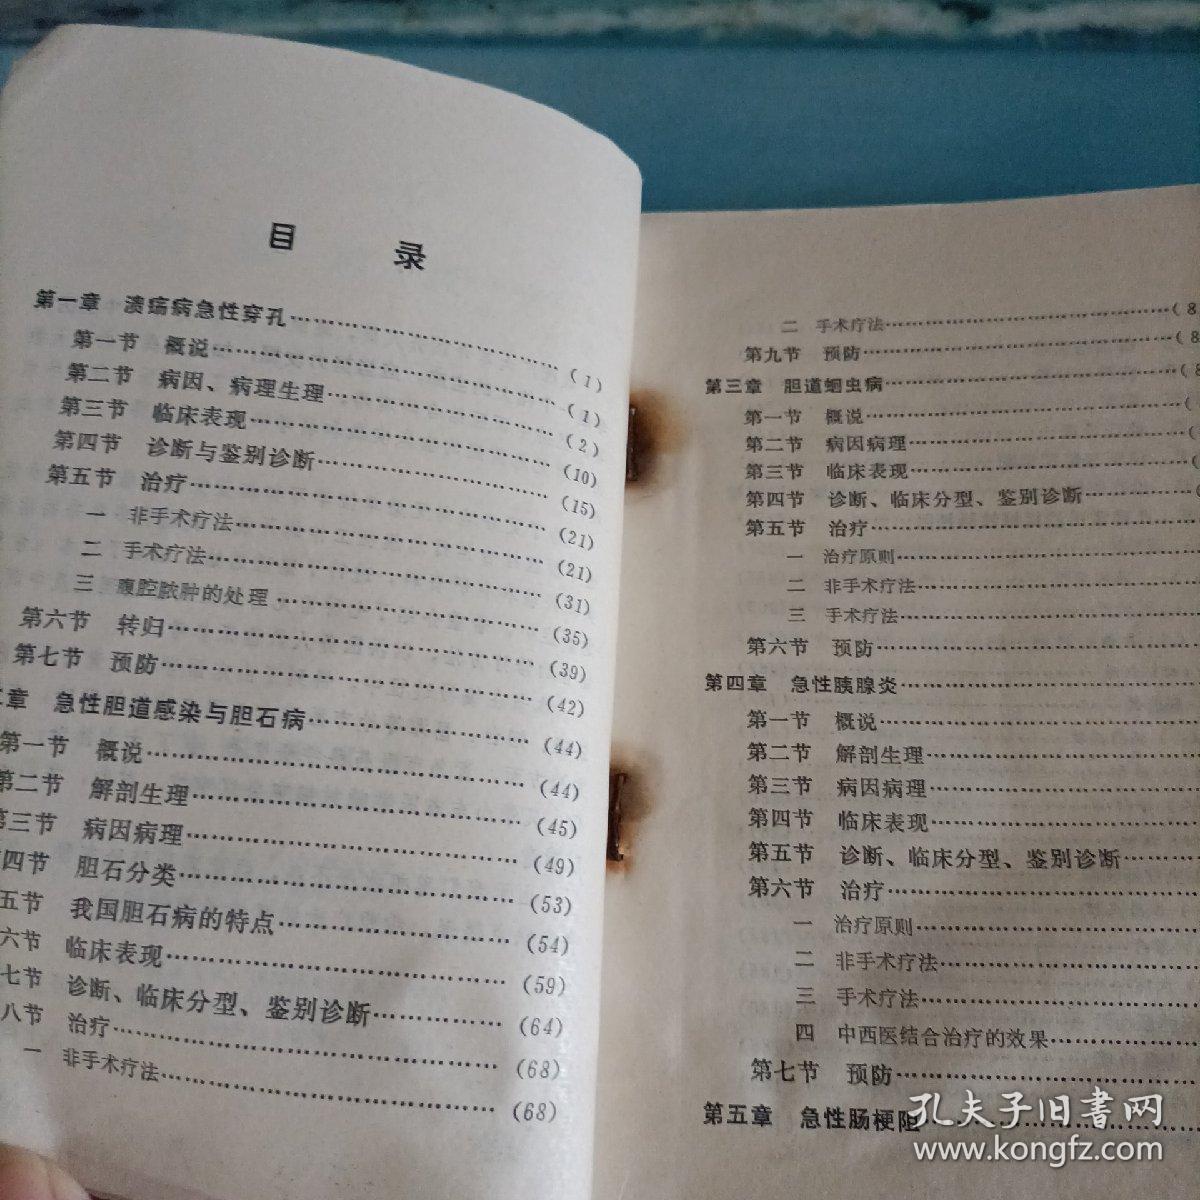 目 录
第一章 溃疡病急性穿孔……………………(1)
第一节 概说……………………(1)
第二节 病因、病理生理……………………(2)
第三节 临床表现……………………(10)
第四节 诊断与鉴别诊断……………………(15)
第五节 治疗……………………(21)
一 非手术疗法……………………(21)
二 手术疗法……………………(31)
三 腹腔脓肿的处理……………………(35)
第六节 转归……………………(39)
第七节 预防……………………(42)
章 急性胆道感染与胆石病……………………(44)
第一节 概说……………………(44)
第二节 解剖生理……………………(45)
第三节 病因病理……………………(49)
四节 胆石分类……………………(53)
五节 我国胆石病的特点……………………(54)
六节 临床表现……………………(59)
七节 诊断、临床分型、鉴别诊断……………(64)
八节 治疗……………………(68)
一 非手术疗法……………………(68)
二 手术疗法……………………(8
第九节 预防……………………(8
第三章 胆道蛔虫病……………………(8
第一节 概说……………………(
第二节 病因病理……………………(
第三节 临床表现……………………(
第四节 诊断、临床分型、鉴别诊断…………(
第五节 治疗……………………
一 治疗原则……………………
二 非手术疗法……………………
三 手术疗法……………………
第六节 预防……………………
第四章 急性胰腺炎……………………
第一节 概说……………………
第二节 解剖生理……………………
第三节 病因病理……………………
第四节 临床表现……………………
第五节 诊断、临床分型、鉴别诊断………
第六节 治疗……………………
一 治疗原则……………………
二 非手术疗法……………………
三 手术疗法……………………
四 中西医结合治疗的效果……………
第七节 预防……………………
第五章 急性肠梗阻……………………
孔夫子旧书网
www.kongfz.com